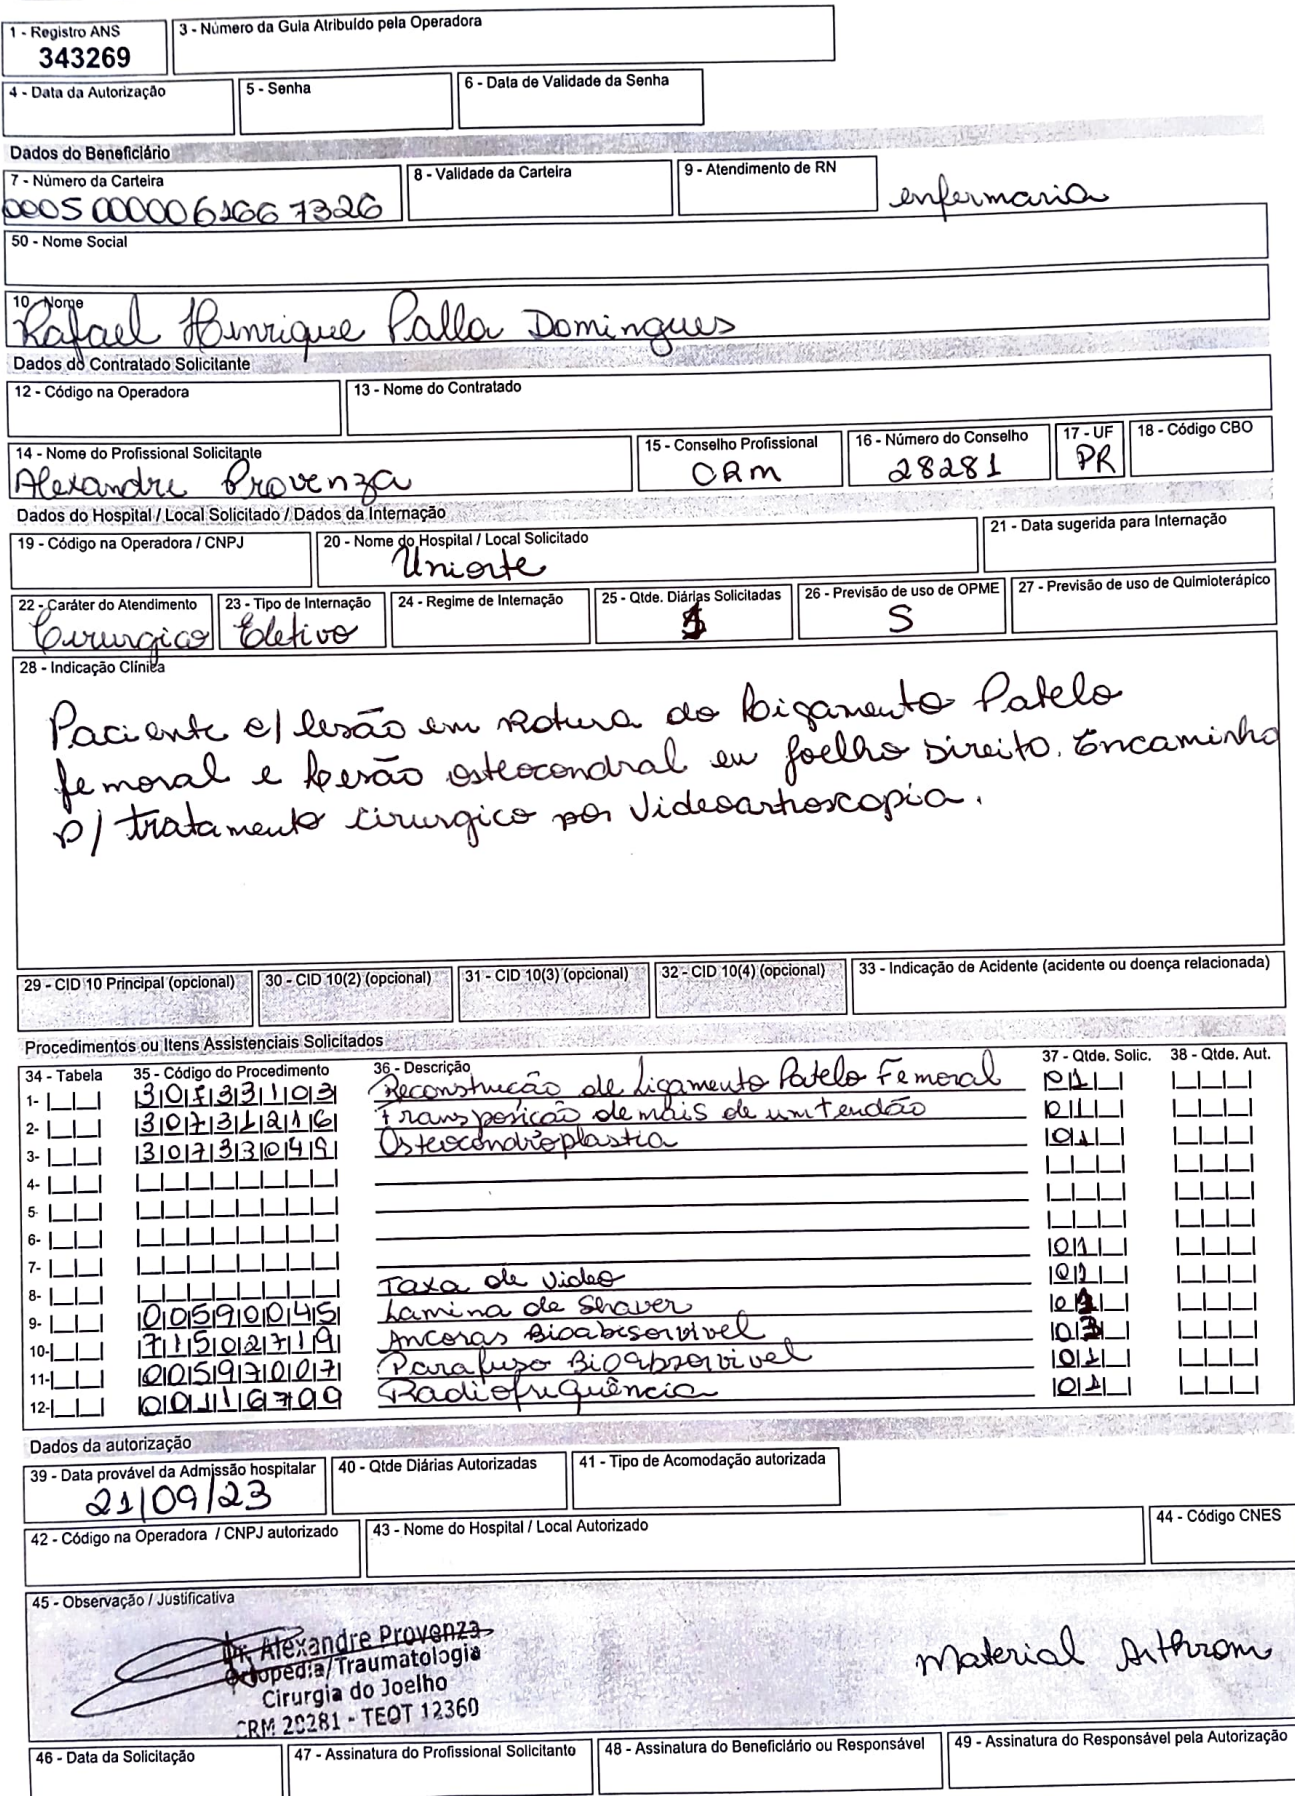 1 - Registro ANS
343269
3 - Número da Guia Atribuído pela Operadora
4 - Data da Autorização
5 - Senha
6 - Data de Validade da Senha
Dados do Beneficiário
7 - Número da Carteira
0005 000006166 7326
8 - Validade da Carteira
9 - Atendimento de RN
enfermaria
50 - Nome Social
10 - Nome
Rafael Henrique Palla Domingues
Dados do Contratado Solicitante
12 - Código na Operadora
13 - Nome do Contratado
14 - Nome do Profissional Solicitante
Alexandre Provenza
15 - Conselho Profissional
CRM
16 - Número do Conselho
28281
17 - UF
PR
18 - Código CBO
Dados do Hospital / Local Solicitado / Dados da Internação
19 - Código na Operadora / CNPJ
20 - Nome do Hospital / Local Solicitado
Uniorte
21 - Data sugerida para Internação
22 - Caráter do Atendimento
Cirurgico
23 - Tipo de Internação
Eletivo
24 - Regime de Internação
25 - Qtde. Diárias Solicitadas
1
26 - Previsão de uso de OPME
S
27 - Previsão de uso de Quimioterápico
28 - Indicação Clínica
Paciente c/ lesão em Rotura do Ligamento Patelo
femoral e lesão osteocondral em joelho Direito. Encaminho
p/ tratamento cirurgico por Videoartroscopia.
29 - CID 10 Principal (opcional)
30 - CID 10(2) (opcional)
31 - CID 10(3) (opcional)
32 - CID 10(4) (opcional)
33 - Indicação de Acidente (acidente ou doença relacionada)
Procedimentos ou Itens Assistenciais Solicitados
34 - Tabela 35 - Código do Procedimento 36 - Descrição 37 - Qtde. Solic. 38 - Qtde. Aut.
1- Reconstrução de Ligamento Patelo Femoral 01
2- 30731216 Transposição de mais de um tendão 01
3- 30733049 Osteocondroplastia 01
4-
5-
6-
7- 01
8- Taxa de Video 01
9- 00590045 Lamina de Shaver
10- 71502719 Ancoras Bioabsorvivel
11- 00597007 Parafuso Bioabsorvivel 01
12- 00116709 Radiofrequência 01
Dados da autorização
39 - Data provável da Admissão hospitalar
21/09/23
40 - Qtde Diárias Autorizadas
41 - Tipo de Acomodação autorizada
42 - Código na Operadora / CNPJ autorizado
43 - Nome do Hospital / Local Autorizado
44 - Código CNES
45 - Observação / Justificativa
Dr. Alexandre Provenza
Ortopedia/Traumatologia
Cirurgia do Joelho
CRM 28281 - TEOT 12360
Material Arthrom
46 - Data da Solicitação
47 - Assinatura do Profissional Solicitante
48 - Assinatura do Beneficiário ou Responsável
49 - Assinatura do Responsável pela Autorização